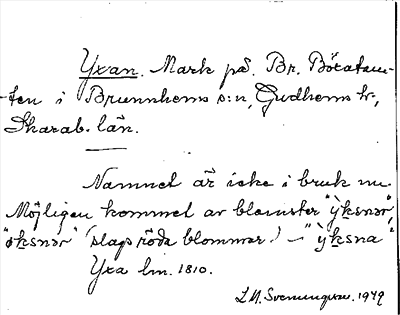 Yxan. Mark på Br. Börstom-
ten i Brunnhems s:n, Gudhems h-,
Skarab. län.
Namnet är icke i bruk nu.
Möjligen kommet av blomster "ỳksnər",
"øksnər" (slags röda blommor.) — "ỳksna"
Yxa lm. 1810.
1949